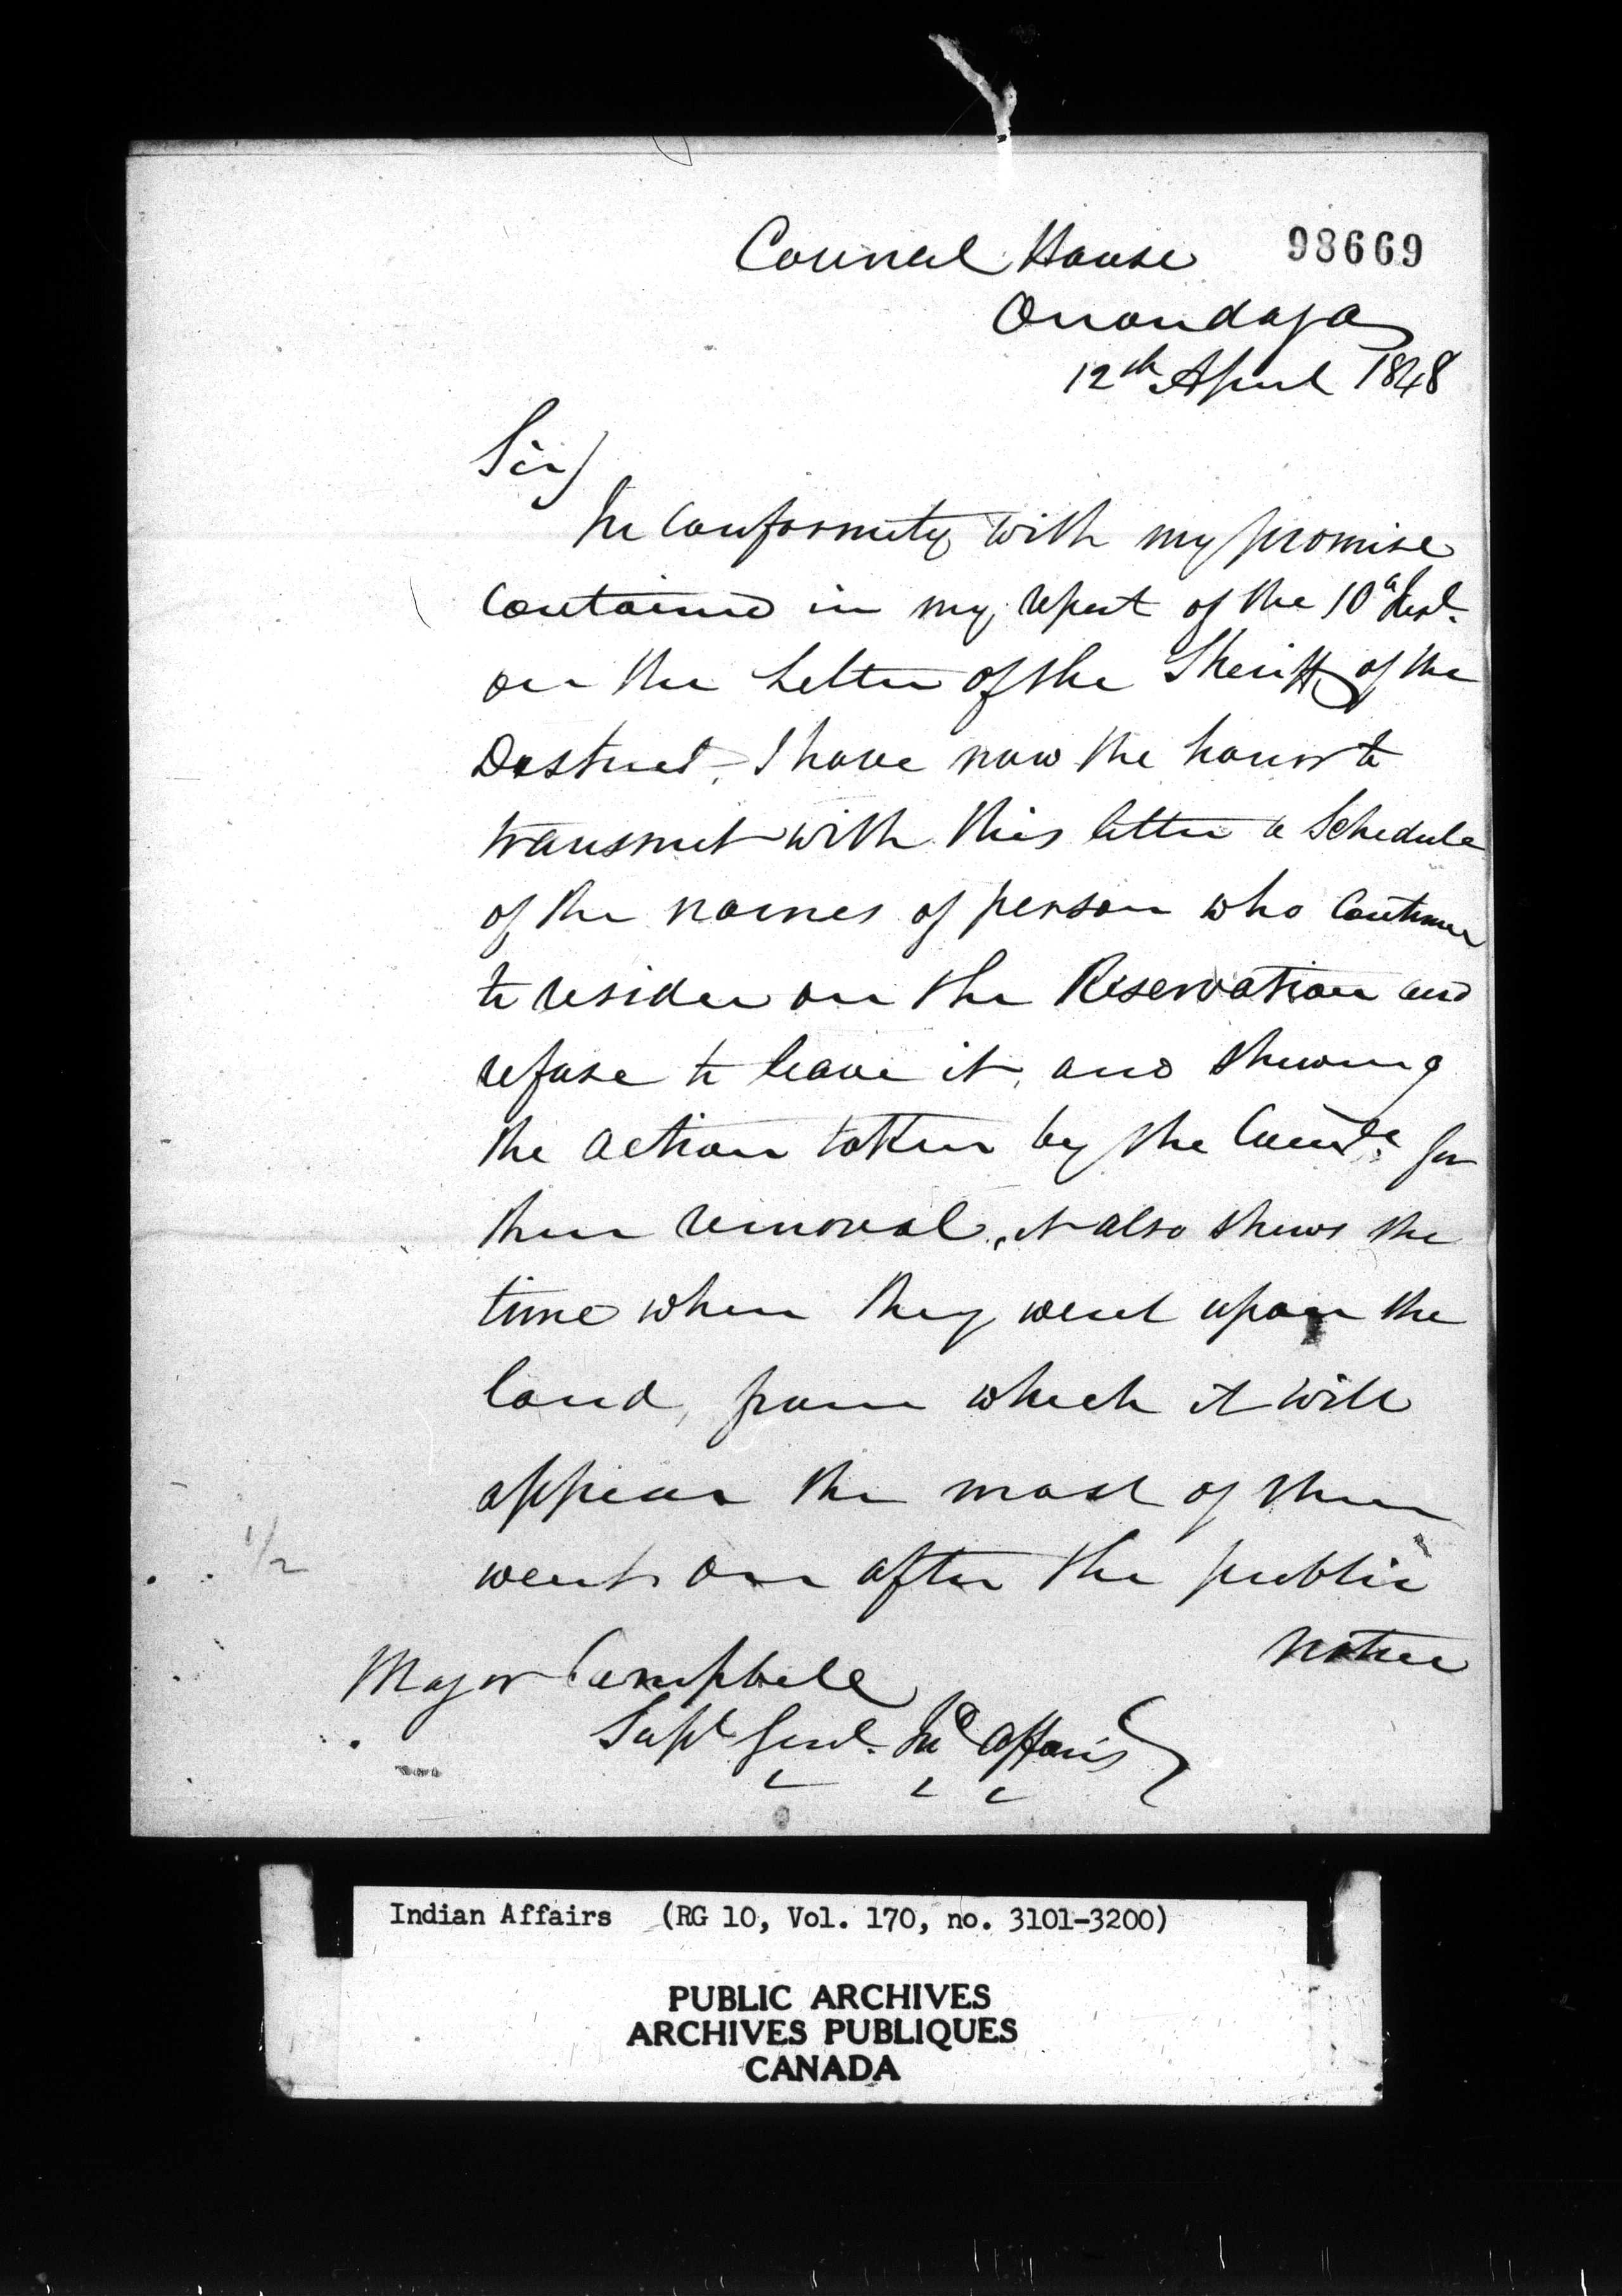 Council House 98669
Onondaga
12th April 1848
Sir/
In Conformity with my promise
contained in my report of the 10th Inst.
on the Letter of the Sheriff of the
District, I have now the honor to
transmit with this letter a Schedule
of the names of person who Continue
to reside on the Reservation and
refuse to leave it, and shewing
the action taken by the for
their removal, it also shews the
time when they went upon the
land, from which it will
appear the most of them
went on after the public
notice
Major Campbell
Supt Genl. Ind Affairs
1/2
Indian Affairs (RG 10, Vol. 170, no. 3101-3200)
PUBLIC ARCHIVES
ARCHIVES PUBLIQUES
CANADA